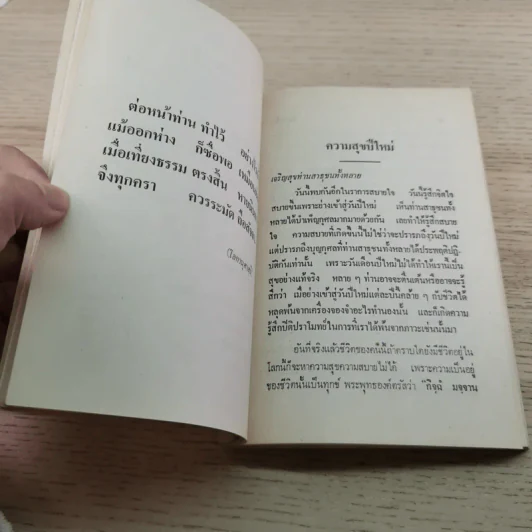 ต่อหน้าท่าน ทำไว้
แม้ออกห่าง ก็ซื่อ
เมื่อเที่ยงธรรม ตรงสั้น
จึงทุกครา ควรระมัด
ความสุขปีใหม่
เจริญสุขท่านสาธุชนทั้งหลาย
วันนี้พบกันอีกในรายการสบายใจ วันนี้รู้สึกจิตใจ
สบายขึ้นเพราะย่างเข้าสู่วันปีใหม่ เห็นท่านสาธุชนทั้ง
หลายได้บำเพ็ญกุศลมากมายด้วยกัน เลยทำให้รู้สึกสบาย
ใจ ความสบายที่เกิดขึ้นนี้ไม่ใช่ว่าจะปรารภถึงวันปีใหม่
แต่ปรารภถึงบุญกุศลที่ท่านสาธุชนทั้งหลายได้ประพฤติปฏิ-
บัติกันเท่านั้น เพราะวันเดือนปีใหม่ไม่ได้ทำให้เรานี้เป็น
สุขอย่างแท้จริง หลาย ๆ ท่านอาจจะตื่นเต้นหรืออาจจะรู้
สึกว่า เมื่อย่างเข้าสู่วันปีใหม่แต่ละปีนี้คล้าย ๆ กับชีวิตได้
หลุดพ้นจากเครื่องจองจำอะไรทำนองนั้น และก็เกิดความ
รู้สึกปีติปราโมทย์ในการที่เราได้พ้นจากภาวะเช่นนั้นมา
อันที่จริงแล้วชีวิตของคนนี้ถ้าตราบใดยังมีชีวิตอยู่ใน
โลกนี้ก็จะหาความสุขความสบายไม่ได้ เพราะความเป็นอยู่
ของชีวิตนั้นเป็นทุกข์ พระพุทธองค์ตรัสว่า "กิจฺฉํ มจฺจาน